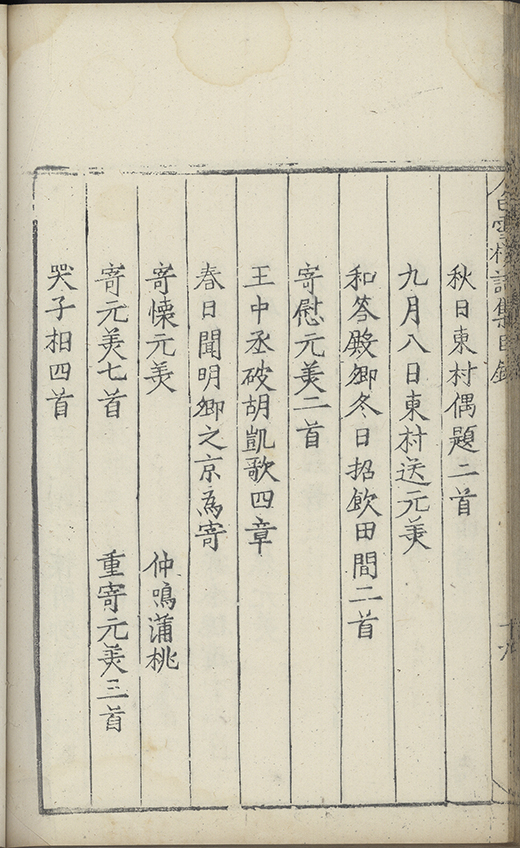 白雲樓詩集目錄
秋日東村偶題二首
九月八日東村送元美
和答殿卿冬日招飲田間二首
寄慰元美二首
王中丞破胡凱歌四章
春日聞明卿之京為寄
寄懷元美 仲鳴蒲桃
寄元美七首 重寄元美三首
哭子相四首